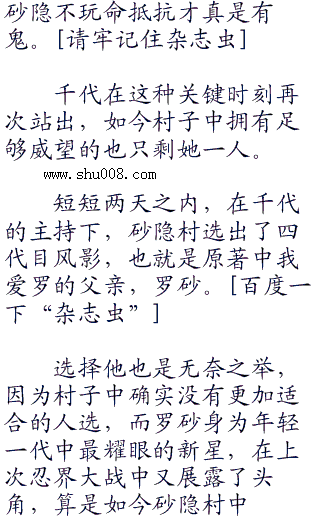 砂隐不玩命抵抗才真是有
鬼。[请牢记住杂志虫]
千代在这种关键时刻再
次站出，如今村子中拥有足
够威望的也只剩她一人。
www.shu008.com
短短两天之内，在千代
的主持下，砂隐村选出了四
代目风影，也就是原著中我
爱罗的父亲，罗砂。[百度一
下“杂志虫”]
选择他也是无奈之举，
因为村子中确实没有更加适
合的人选，而罗砂身为年轻
一代中最耀眼的新星，在上
次忍界大战中又展露了头
角，算是如今砂隐村中